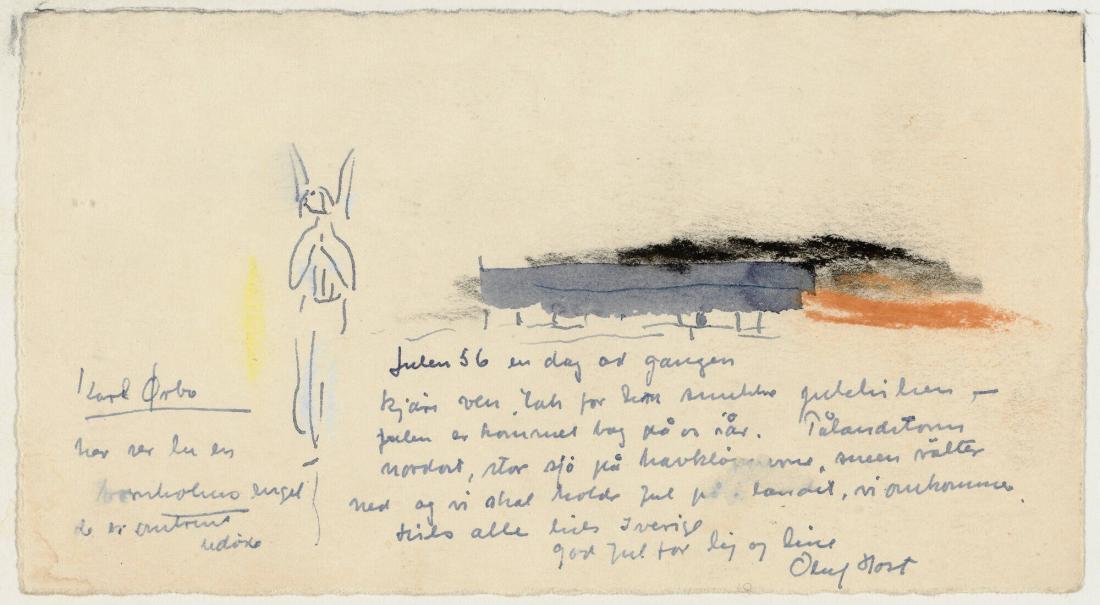 Karl Ørbo
her ser du en
bornholmsk engel
de er omtrent
uddøde
Julen 56 en dag ad gangen
kjäre ven, tak for din smukke julehilsen –
julen er kommet bag på os i år.
nordost, stor sjö på, sneen välter
ned og vi skal holde jul på landet, vi omkommer
hils alle hils Sverige
god jul for dig og dine
Oluf Høst